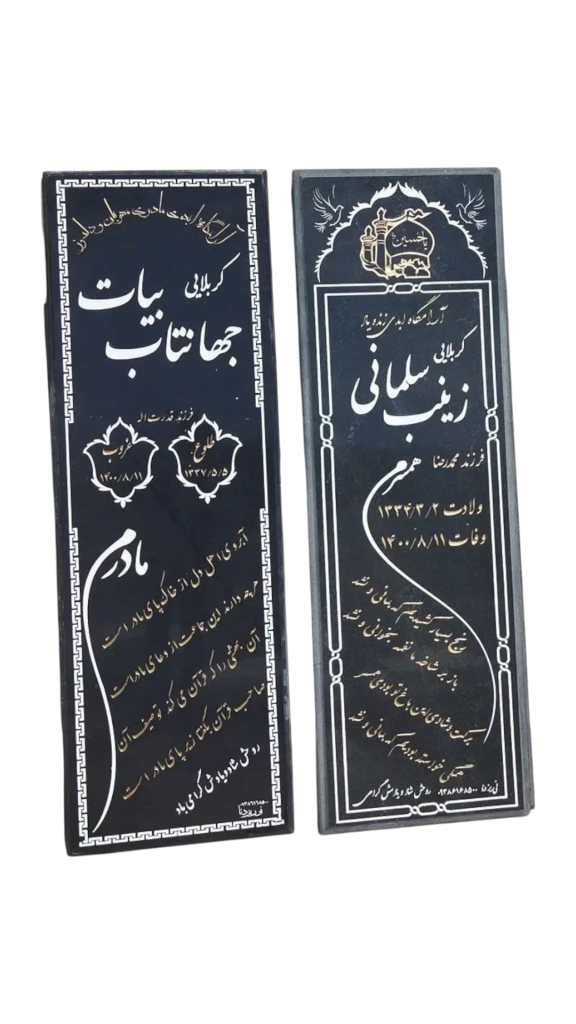 آرامگاه ابدی مادری مهربان و
کربلایی
بیات
جهانتاب
فرزند قدرت اله
طلوع
۱۳۳۷/۵/۵
غروب
۱۴۰۰/۸/۱۱
مادرم
آبروی اهل دل از خاک پای مادر است
هرچه دارند این جماعت از دعای مادر است
آن بهشتی را که قرآن می کند توصیف آن
صاحب قرآن بگفتا زیر پای مادر است
روحش شاد و یادش گرامی باد
یا حسین
آرامگاه ابدی زنده یاد
کربلایی
زینب سلمانی
فرزند محمدرضا
همسرم
ولادت ۱۳۳۴/۳/۲
وفات ۱۴۰۰/۸/۱۱
رنج بسیار کشیدم که بمانی و نشد
روحش شاد و یادش گرامی
۰۹۳۸۶۱۶۸۵۰۰